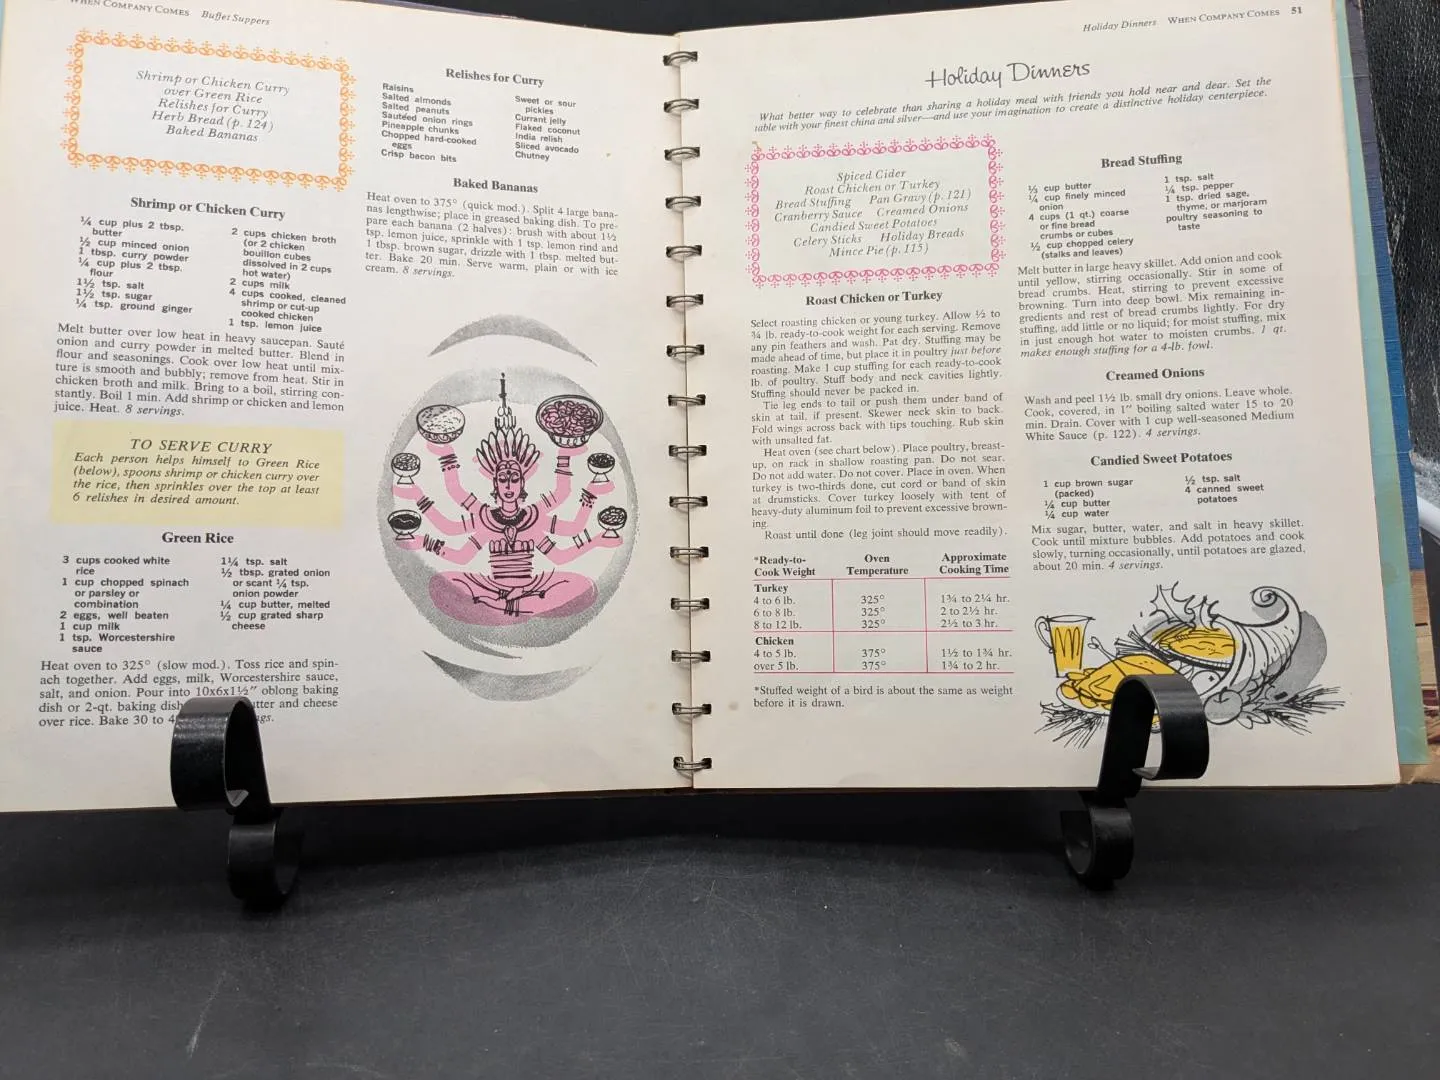 WHEN COMPANY COMES Buffet Suppers
Shrimp or Chicken Curry
over Green Rice
Relishes for Curry
Herb Bread (p. 124)
Baked Bananas
Shrimp or Chicken Curry
¼ cup plus 2 tbsp.
butter
½ cup minced onion
1 tbsp. curry powder
¼ cup plus 2 tbsp.
flour
1½ tsp. salt
1½ tsp. sugar
¼ tsp. ground ginger
2 cups chicken broth
(or 2 chicken
bouillon cubes
dissolved in 2 cups
hot water)
2 cups milk
4 cups cooked, cleaned
shrimp or cut-up
cooked chicken
1 tsp. lemon juice
Melt butter over low heat in heavy saucepan. Sauté
onion and curry powder in melted butter. Blend in
flour and seasonings. Cook over low heat until mix-
ture is smooth and bubbly; remove from heat. Stir in
chicken broth and milk. Bring to a boil, stirring con-
stantly. Boil 1 min. Add shrimp or chicken and lemon
juice. Heat. 8 servings.
TO SERVE CURRY
Each person helps himself to Green Rice
(below), spoons shrimp or chicken curry over
the rice, then sprinkles over the top at least
6 relishes in desired amount.
Green Rice
3 cups cooked white
rice
1 cup chopped spinach
or parsley or
combination
2 eggs, well beaten
1 cup milk
1 tsp. Worcestershire
sauce
1¼ tsp. salt
½ tbsp. grated onion
or scant ¼ tsp.
onion powder
¼ cup butter, melted
½ cup grated sharp
cheese
Heat oven to 325° (slow mod.). Toss rice and spin-
ach together. Add eggs, milk, Worcestershire sauce,
salt, and onion. Pour into 10x6x1½" oblong baking
dish or 2-qt. baking dish and cheese
over rice. Bake 30 to
Relishes for Curry
Raisins
Salted almonds
Salted peanuts
Sautéed onion rings
Pineapple chunks
Chopped hard-cooked
eggs
Crisp bacon bits
Sweet or sour
pickles
Currant jelly
Flaked coconut
India relish
Sliced avocado
Chutney
Baked Bananas
Heat oven to 375° (quick mod.). Split 4 large bana-
nas lengthwise; place in greased baking dish. To pre-
pare each banana (2 halves): brush with about 1½
tsp. lemon juice, sprinkle with 1 tsp. lemon rind and
1 tbsp. brown sugar, drizzle with 1 tbsp. melted but-
ter. Bake 20 min. Serve warm, plain or with ice
cream. 8 servings.
Holiday Dinners WHEN COMPANY COMES 51
Holiday Dinners
What better way to celebrate than sharing a holiday meal with friends you hold near and dear. Set the
table with your finest china and silver—and use your imagination to create a distinctive holiday centerpiece.
Spiced Cider
Roast Chicken or Turkey
Bread Stuffing Pan Gravy (p. 121)
Cranberry Sauce Creamed Onions
Candied Sweet Potatoes
Celery Sticks Holiday Breads
Mince Pie (p. 115)
Roast Chicken or Turkey
Select roasting chicken or young turkey. Allow ½ to
¾ lb. ready-to-cook weight for each serving. Remove
any pin feathers and wash. Pat dry. Stuffing may be
made ahead of time, but place it in poultry just before
roasting. Make 1 cup stuffing for each ready-to-cook
lb. of poultry. Stuff body and neck cavities lightly.
Stuffing should never be packed in.
Tie leg ends to tail or push them under band of
skin at tail, if present. Skewer neck skin to back.
Fold wings across back with tips touching. Rub skin
with unsalted fat.
Heat oven (see chart below). Place poultry, breast-
up, on rack in shallow roasting pan. Do not sear.
Do not add water. Do not cover. Place in oven. When
turkey is two-thirds done, cut cord or band of skin
at drumsticks. Cover turkey loosely with tent of
heavy-duty aluminum foil to prevent excessive brown-
ing.
Roast until done (leg joint should move readily).
*Ready-to-
Cook Weight
Oven
Temperature
Approximate
Cooking Time
Turkey
4 to 6 lb. 325° 1¾ to 2¼ hr.
6 to 8 lb. 325° 2 to 2½ hr.
8 to 12 lb. 325° 2½ to 3 hr.
Chicken
4 to 5 lb. 375° 1½ to 1¾ hr.
over 5 lb. 375° 1¾ to 2 hr.
*Stuffed weight of a bird is about the same as weight
before it is drawn.
Bread Stuffing
⅓ cup butter
¼ cup finely minced
onion
4 cups (1 qt.) coarse
or fine bread
crumbs or cubes
½ cup chopped celery
(stalks and leaves)
1 tsp. salt
¼ tsp. pepper
1 tsp. dried sage,
thyme, or marjoram
poultry seasoning to
taste
Melt butter in large heavy skillet. Add onion and cook
until yellow, stirring occasionally. Stir in some of
bread crumbs. Heat, stirring to prevent excessive
browning. Turn into deep bowl. Mix remaining in-
gredients and rest of bread crumbs lightly. For dry
stuffing, add little or no liquid; for moist stuffing, mix
in just enough hot water to moisten crumbs. 1 qt.
makes enough stuffing for a 4-lb. fowl.
Creamed Onions
Wash and peel 1½ lb. small dry onions. Leave whole.
Cook, covered, in 1" boiling salted water 15 to 20
min. Drain. Cover with 1 cup well-seasoned Medium
White Sauce (p. 122). 4 servings.
Candied Sweet Potatoes
1 cup brown sugar
(packed)
¼ cup butter
¼ cup water
½ tsp. salt
4 canned sweet
potatoes
Mix sugar, butter, water, and salt in heavy skillet.
Cook until mixture bubbles. Add potatoes and cook
slowly, turning occasionally, until potatoes are glazed,
about 20 min. 4 servings.